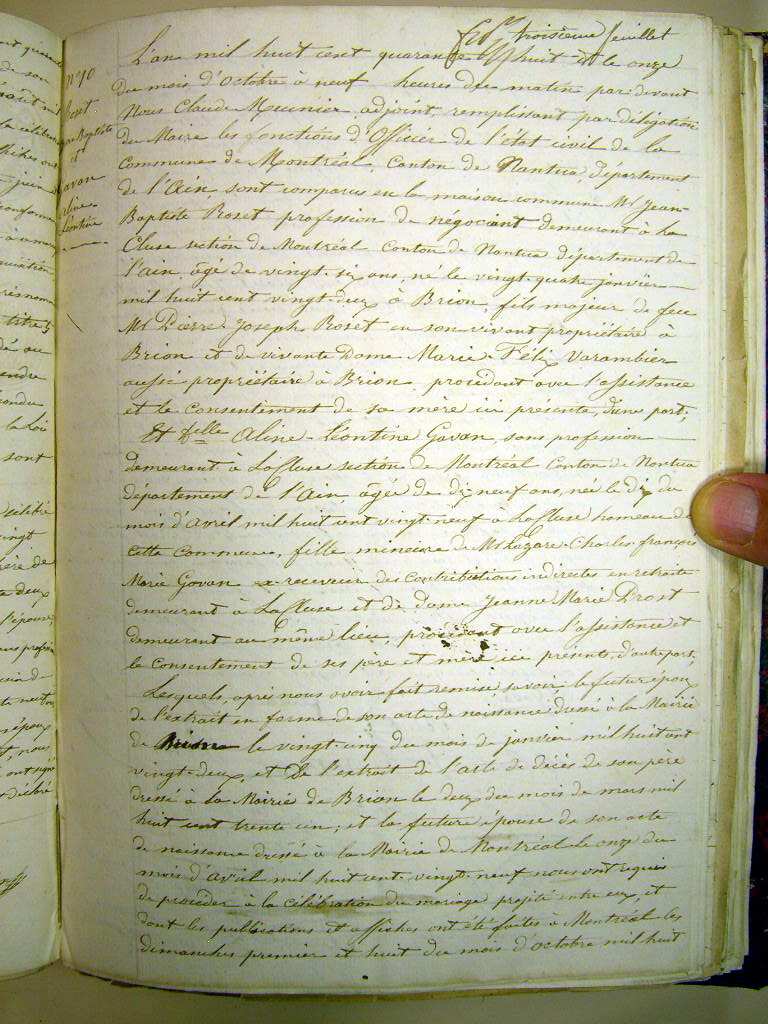 troisième feuillet
n° 10
Roset
et
Gavan
Aline
Léontine
L'an mil huit cent quarante huit et le onze
du mois d'octobre à neuf heures du matin par devant
Nous Claude Meunier, adjoint, remplissant par délégation
du Maire les fonctions d'Officier de l'état civil de la
Commune de Montréal, Canton de Nantua, Département
de l'Ain, sont comparus en la maison commune Mr Jean-
Baptiste Roset profession de négociant demeurant à La
Cluse section de Montréal Canton de Nantua département de
l'ain, âgé de vingt-six ans, né le vingt-quatre janvier
mil huit cent vingt-deux à Brion, fils majeur de feu
Mr Pierre-Joseph Roset en son vivant propriétaire à
Brion et de vivante Dame Marie-Félix Varambier
aussi propriétaire à Brion, procédant avec l'assistance
et le consentement de sa mère ici présente, d'une part;
Et Melle Aline-Léontine Gavan, sans profession
demeurant à LaCluse section de Montréal Canton de Nantua
département de l'Ain, âgée de dix neuf ans, née le dix du
mois d'Avril mil huit cent vingt-neuf à LaCluse hameau de
cette commune, fille mineure de Mr Lazare-Charles-françois
Marie Gavan ex-receveur des contributions indirectes en retraite
demeurant à LaCluse et de dame Jeanne Marie Prost
demeurant au même lieu, procédant avec l'assistance et
le consentement de ses père et mère ici présents, d'autre part;
Lesquels, après nous avoir fait remise savoir, le futur époux
de l'extrait en forme de son acte de naissance dressé à la Mairie
de Brion le vingt-cinq du mois de janvier mil huit cent
vingt-deux, et de l'extrait de l'acte de décès de son père
dressé à la Mairie de Brion le deux du mois de mars mil
huit cent trente un; et la future épouse de son acte
de naissance dressé à la Mairie de Montréal le onze du
mois d'avril mil huit cent vingt-neuf nous ont requis
de procéder à la célébration du mariage projeté entre eux, et
dont les publications et affiches ont été faites à Montréal les
dimanches premier et huit du mois d'octobre mil huit